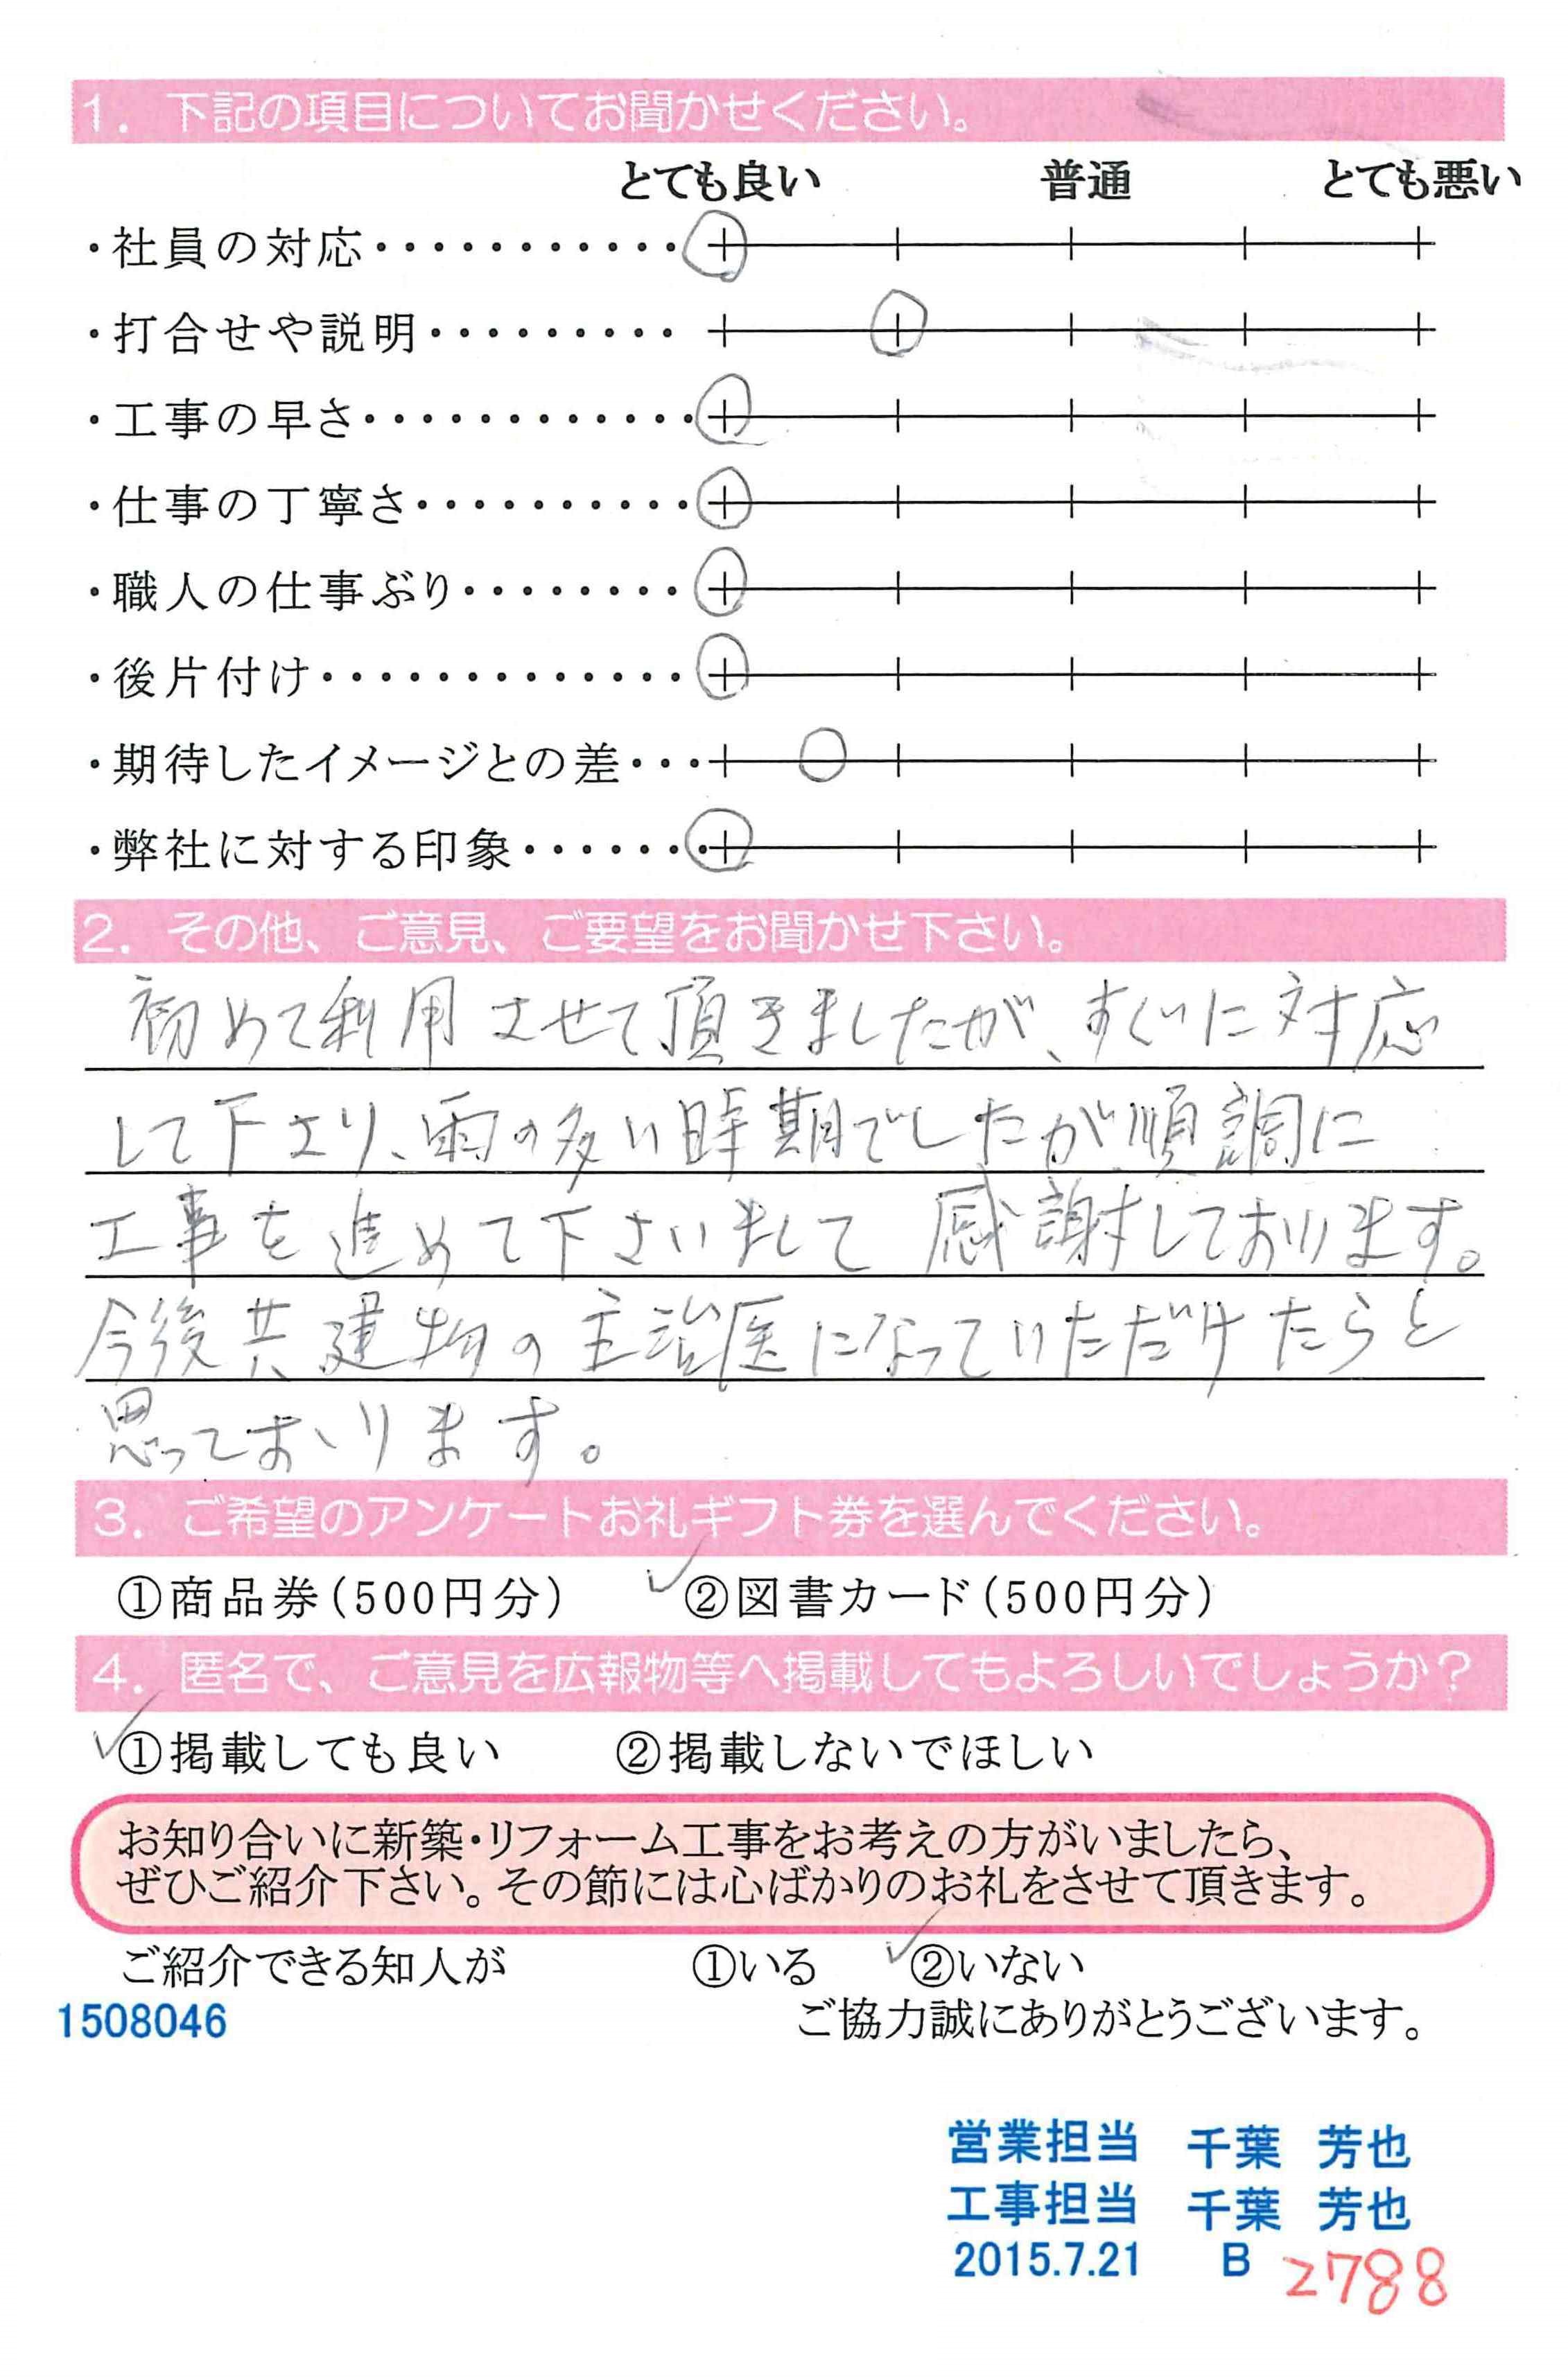 1. 下記の項目についてお聞かせください。
とても良い 普通 とても悪い
・社員の対応・・・・・・・・・・・
・打合せや説明・・・・・・・・・
・工事の早さ・・・・・・・・・・・・
・仕事の丁寧さ・・・・・・・・・・
・職人の仕事ぶり・・・・・・・・
・後片付け・・・・・・・・・・・・・
・期待したイメージとの差・・・
・弊社に対する印象・・・・・・・
2. その他、ご意見、ご要望をお聞かせ下さい。
初めて利用させて頂きましたが、すぐに対応
して下さり、雨の多い時期でしたが順調に
工事を進めて下さいまして 感謝しております。
今後共建物の主治医になっていただけたらと
思っております。
3. ご希望のアンケートお礼ギフト券を選んでください。
①商品券(500円分) ✓②図書カード(500円分)
4. 匿名で、ご意見を広報物等へ掲載してもよろしいでしょうか?
✓①掲載しても良い ②掲載しないでほしい
お知り合いに新築・リフォーム工事をお考えの方がいましたら、
ぜひご紹介下さい。その節には心ばかりのお礼をさせて頂きます。
ご紹介できる知人が ①いる ✓②いない
1508046 ご協力誠にありがとうございます。
営業担当 千葉 芳也
工事担当 千葉 芳也
2015.7.21 B 2788